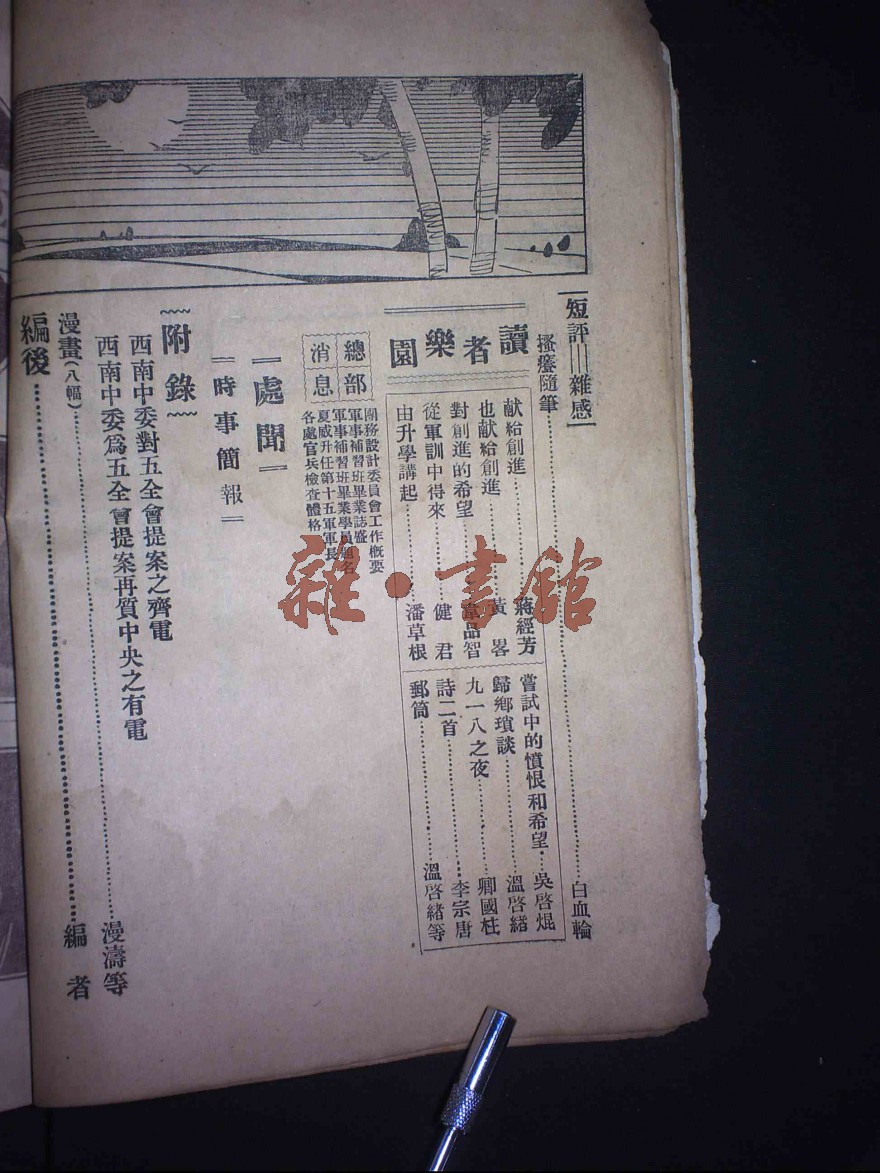 短評||雜感
搔癢隨筆……白血輪
讀者樂園
献給創進……蔣經芳
也献給創進……黃畧
對創進的希望……韋品智
從軍訓中得來……健君
由升學講起……潘草根
嘗試中的憤恨和希望……吳啓焜
歸鄉瑣談……溫啓緒
九一八之夜……卿國柱
詩二首……李宗唐
郵筒……溫啓緒等
總部消息
團務設計委員會工作概要
軍事補習班畢業誌盛
軍事補習班畢業學員題名
夏威升任第十五軍軍長
各處官兵檢查體格
處聞
時事簡報
附錄
西南中委對五全會提案之齊電
西南中委爲五全會提案再質中央之有電
漫畫(八幅)……漫濤等
編後……編者
雜·書館